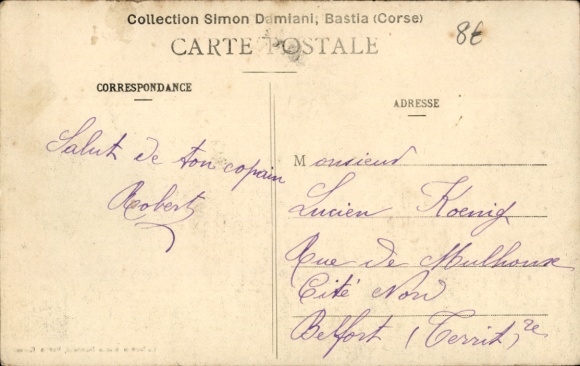 Collection Simon Damiani, Bastia (Corse)
8€
CARTE POSTALE
CORRESPONDANCE
ADRESSE
Salut de ton copain
Robert
Monsieur
Lucien Koenig
Rue de Mulhouse
Cité Nord
Belfort (Territ.re